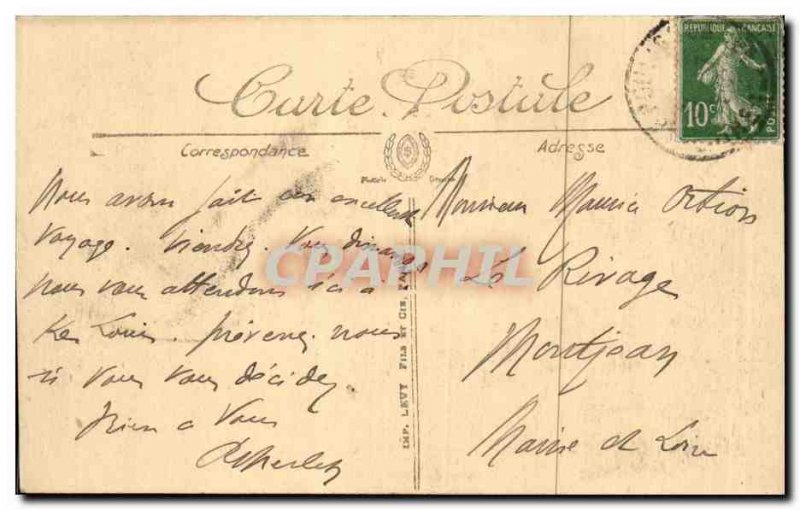 RÉPUBLIQUE FRANÇAISE
10c
POSTES
Carte Postale
Correspondance
Adresse
Nous avons fait un excellent
voyage. Viendrez-vous dimanche
nous vous attendons ici à
Ker Louis. prévenez nous
si vous vous décidez
Bien à vous
Monsieur Maurice
Le Rivage
Montjean
Maine et Loire
IMP. LEVY FILS ET CIE. PARIS
CPAPHIL